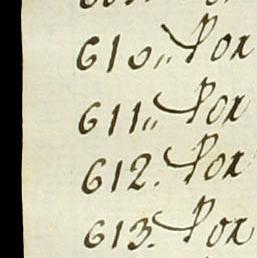 610,, Por
611,, Por
612. Por
613. Por